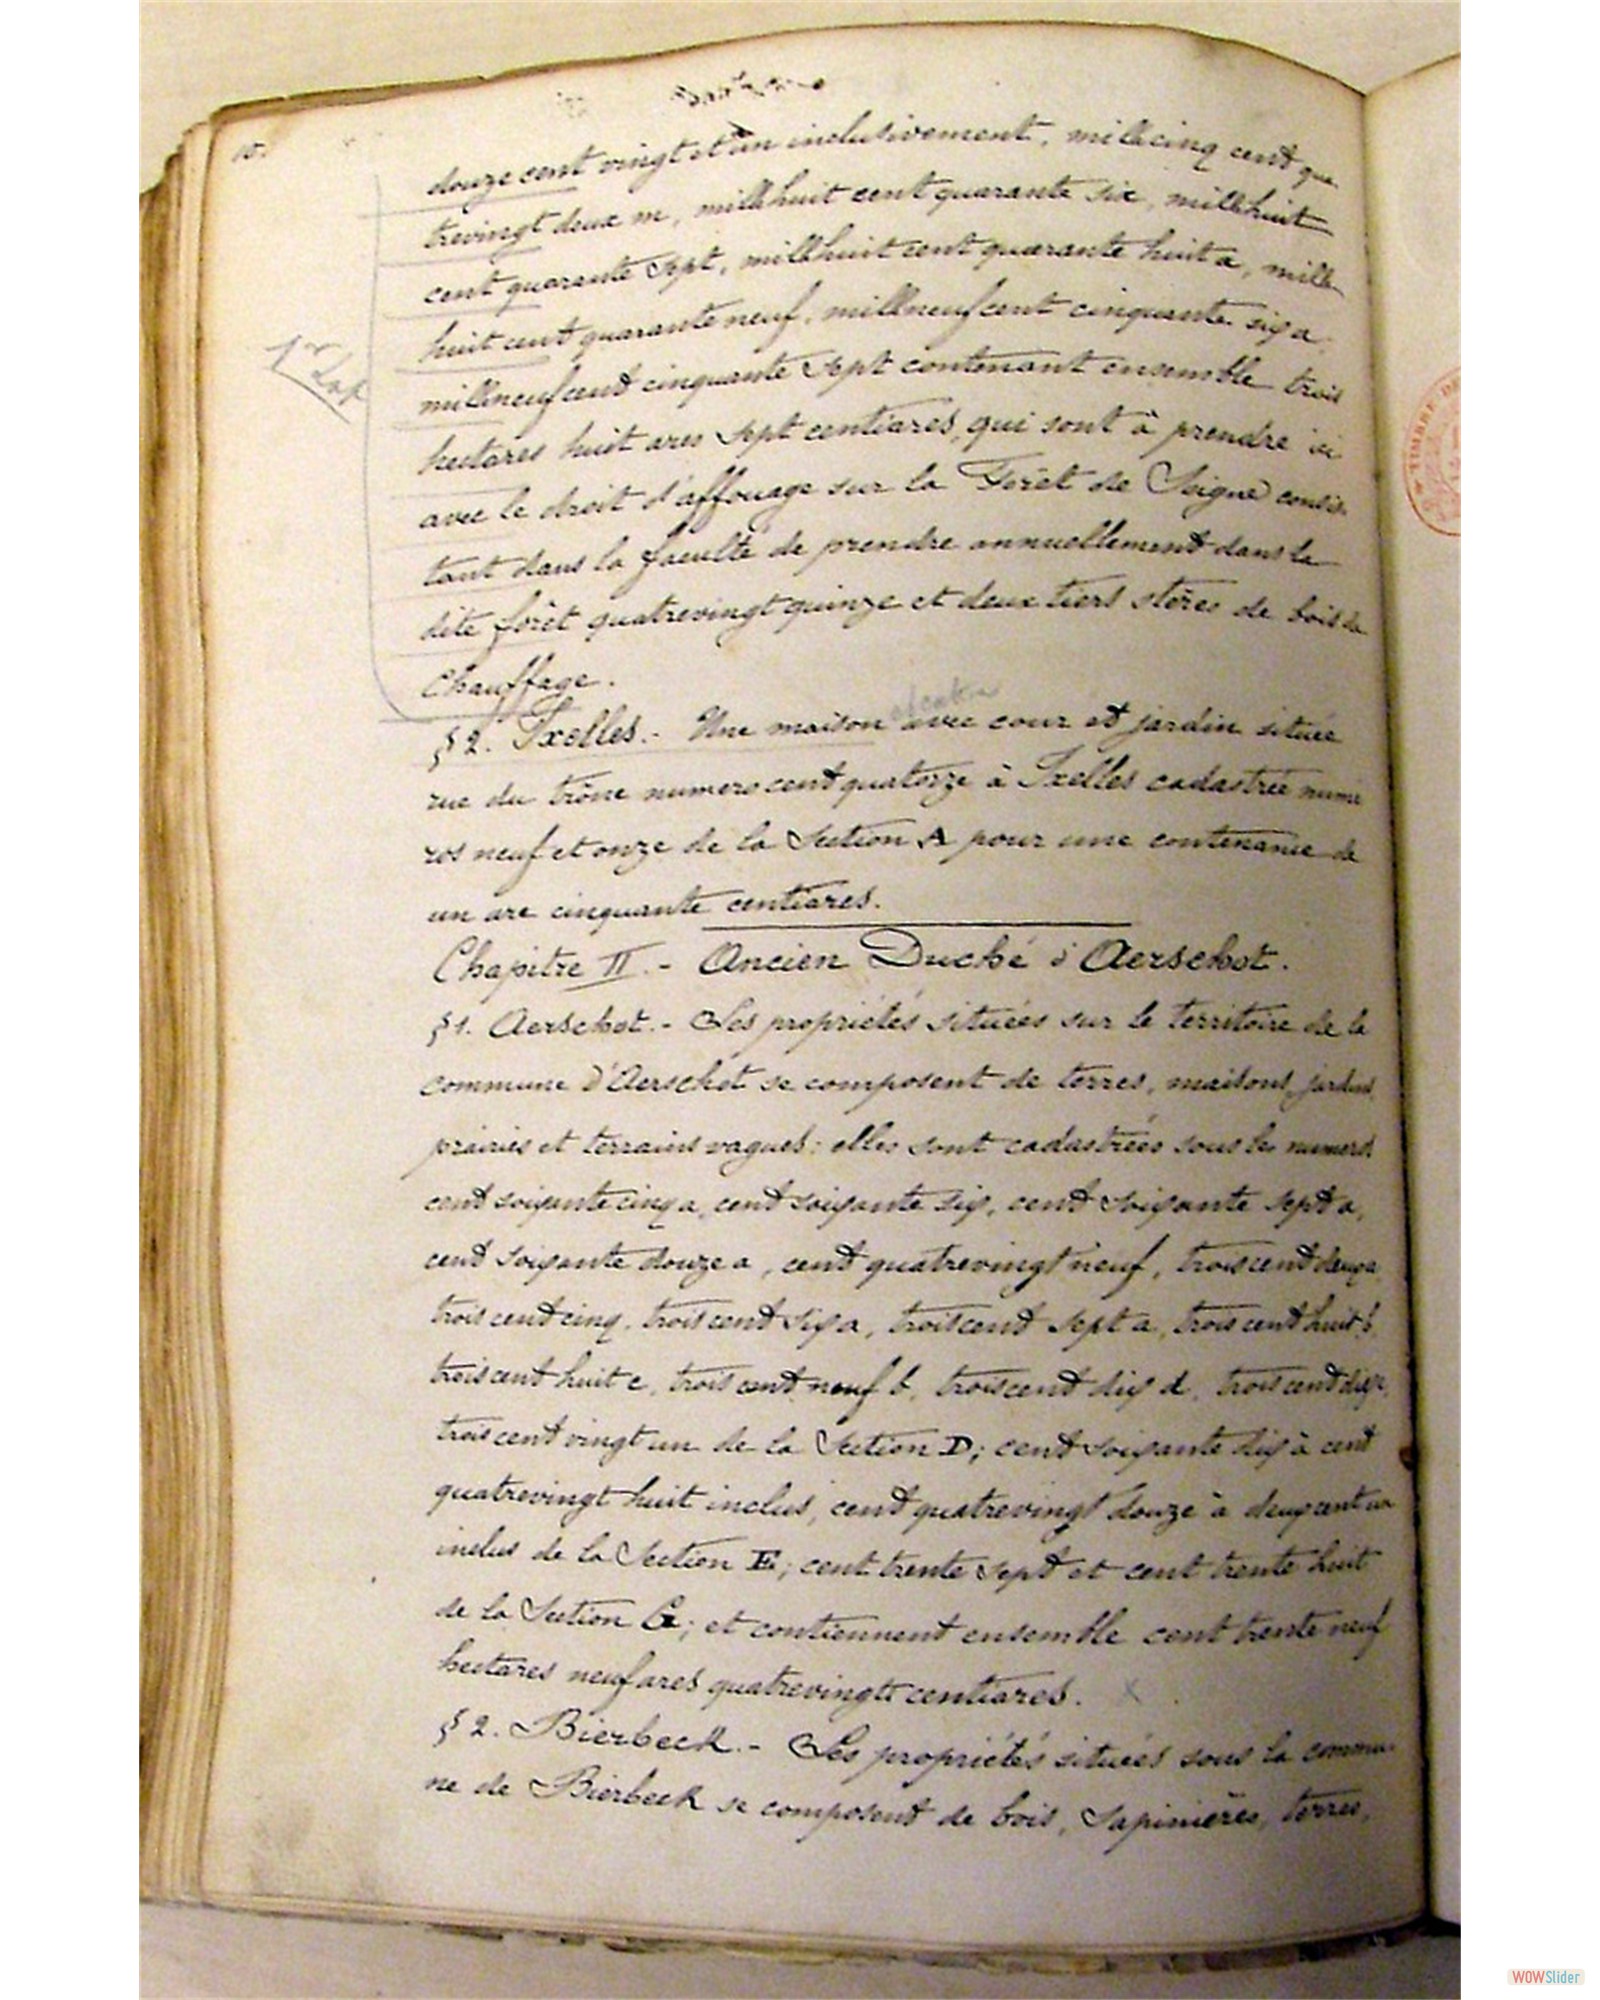 10.
douze cent vingt et un inclusivement, mille cinq cent qua
trevingt deux m, mille huit cent quarante six, mille huit
cent quarante sept, mille huit cent quarante huit a, mille
huit cent quarante neuf, mille neuf cent cinquante six a
mille neuf cent cinquante sept contenant ensemble trois
hectares huit ares sept centiares, qui sont à prendre ici
avec le droit d'affouage sur la Forêt de Soigne consis-
tant dans la faculté de prendre annuellement dans la
dite forêt quatrevingt quinze et deux tiers stères de bois de
Chauffage.
§ 2. Ixelles.- Une maison avec cour et jardin située
rue du trône numero cent quatorze à Ixelles cadastrée numé
ros neuf et onze de la Section A pour une contenance de
un are cinquante centiares.
Chapitre II.- Ancien Duché d'Aerschot.
§ 1. Aerschot.- Les propriétés situées sur le territoire de la
commune d'Aerschot se composent de terres, maisons, jardins,
prairies et terrains vagues: elles sont cadastrées sous les numeros
cent soixante cinq a, cent soixante six, cent soixante sept a,
cent soixante douze a, cent quatrevingt neuf, trois cent deux a,
trois cent cinq, trois cent six a, trois cent sept a, trois cent huit b,
trois cent huit c, trois cent neuf b, trois cent dix d, trois cent dix
trois cent vingt un de la Section D; cent soixante dix à cent
quatrevingt huit inclus, cent quatrevingt douze à deux cent un
inclus de la Section E; cent trente sept et cent trente huit
de la Section G; et contiennent ensemble cent trente neuf
hectares neuf ares quatrevingts centiares.
§ 2. Bierbeck.- Les propriétés situées sous la commu-
ne de Bierbeck se composent de bois, Sapinières, terres,
TIMBRE
WOWSlider